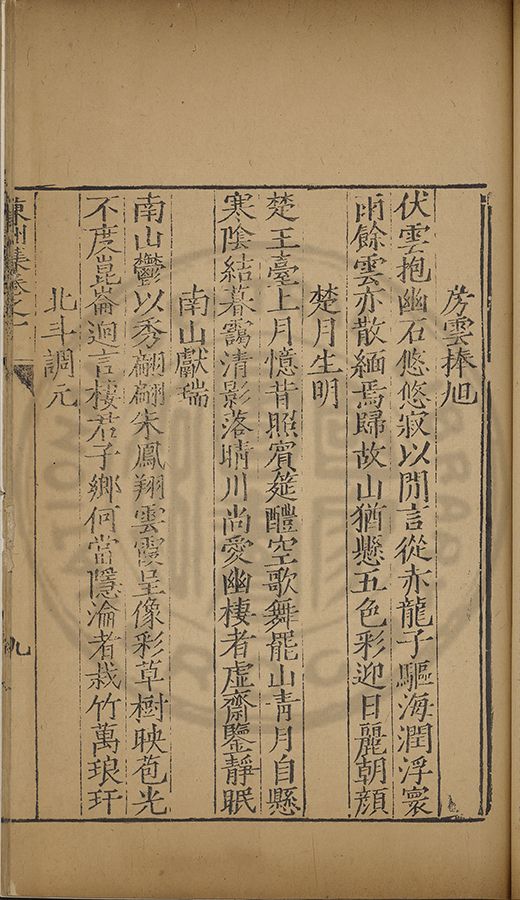 房雲捧旭
伏雲抱幽石悠悠寂以閒言從赤龍子驅海潤浮寰
雨餘雲亦散緬焉歸故山猶懸五色彩迎日麗朝顏
楚月生明
楚王臺上月憶昔照賓筵醴空歌舞罷山青月自懸
寒陰結暮靄清影落晴川尚愛幽棲者虛齋鑒靜眠
南山獻瑞
南山鬱以秀翩翩朱鳳翔雲霞呈像彩草樹映苞光
不度崑崙迥言棲君子鄉何當隱淪者栽竹萬琅玕
北斗調元
東州集卷之一
九